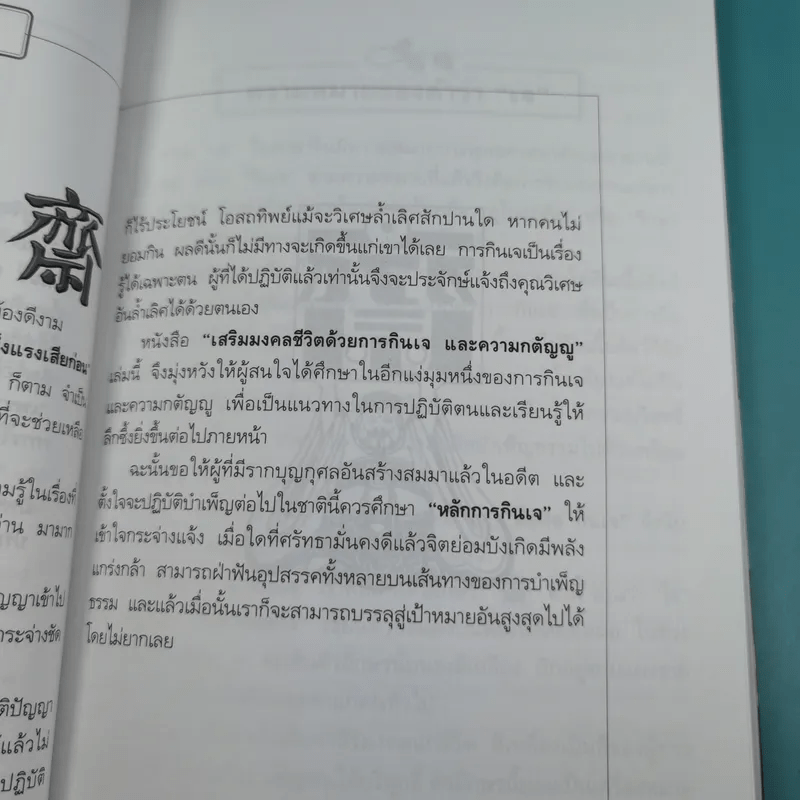 齋
้องดีงาม
งแรงเสียก่อน
ก็ตาม จำเป็น
ที่จะช่วยเหลือ
มรู้ในเรื่องที่
่าน มามาก
ญญาเข้าไป
กระจ่างชัด
ติปัญญา
แล้วไม่
ปฏิบัติ
ก็ไร้ประโยชน์ โอสถทิพย์แม้จะวิเศษล้ำเลิศสักปานใด หากคนไม่
ยอมกิน ผลดีนั้นก็ไม่มีทางจะเกิดขึ้นแก่เขาได้เลย การกินเจเป็นเรื่อง
รู้ได้เฉพาะตน ผู้ที่ได้ปฏิบัติแล้วเท่านั้นจึงจะประจักษ์แจ้งถึงคุณวิเศษ
อันล้ำเลิศได้ด้วยตนเอง
หนังสือ “เสริมมงคลชีวิตด้วยการกินเจ และความกตัญญู”
เล่มนี้ จึงมุ่งหวังให้ผู้สนใจได้ศึกษาในอีกแง่มุมหนึ่งของการกินเจ
และความกตัญญู เพื่อเป็นแนวทางในการปฏิบัติตนและเรียนรู้ให้
ลึกซึ้งยิ่งขึ้นต่อไปภายหน้า
ฉะนั้นขอให้ผู้ที่มีรากบุญกุศลอันสร้างสมมาแล้วในอดีต และ
ตั้งใจจะปฏิบัติบำเพ็ญต่อไปในชาตินี้ควรศึกษา “หลักการกินเจ” ให้
เข้าใจกระจ่างแจ้ง เมื่อใดที่ศรัทธามั่นคงดีแล้วจิตย่อมบังเกิดมีพลัง
แกร่งกล้า สามารถฝ่าฟันอุปสรรคทั้งหลายบนเส้นทางของการบำเพ็ญ
ธรรม และแล้วเมื่อนั้นเราก็จะสามารถบรรลุสู่เป้าหมายอันสูงสุดไปได้
โดยไม่ยากเลย